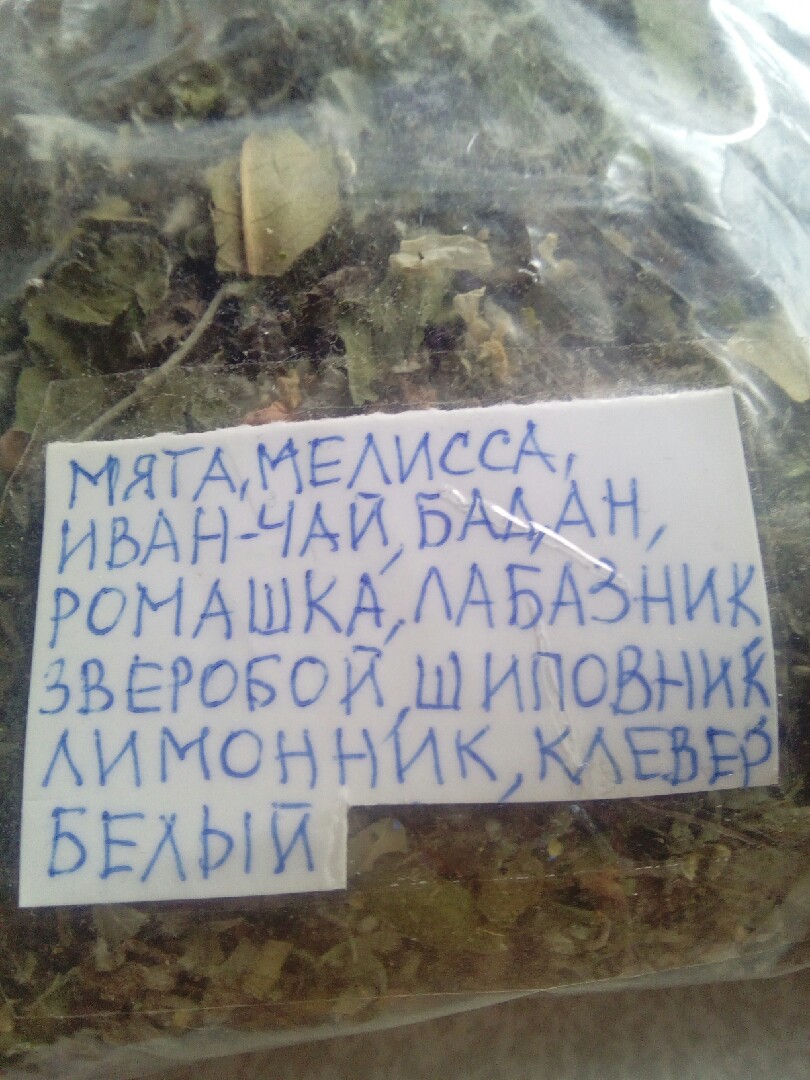 МЯТА, МЕЛИССА,
ИВАН-ЧАЙ, БАДАН,
РОМАШКА, ЛАБАЗНИК,
ЗВЕРОБОЙ, ШИПОВНИК,
ЛИМОННИК, КЛЕВЕР
БЕЛЫЙ